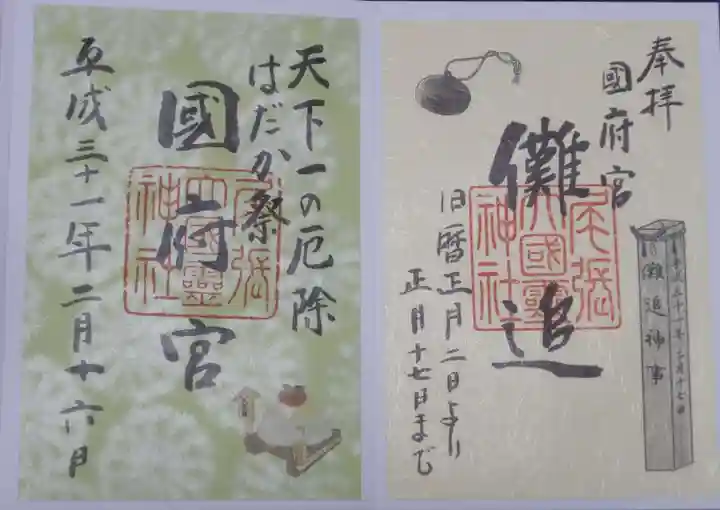 奉拝
國府宮
儺追
旧暦正月二日より
正月十七日まで
儺追神事
尾張
大國霊
神社
天下一の厄除
はだか祭
國府宮
平成三十一年二月十六日
尾張
大國霊
神社